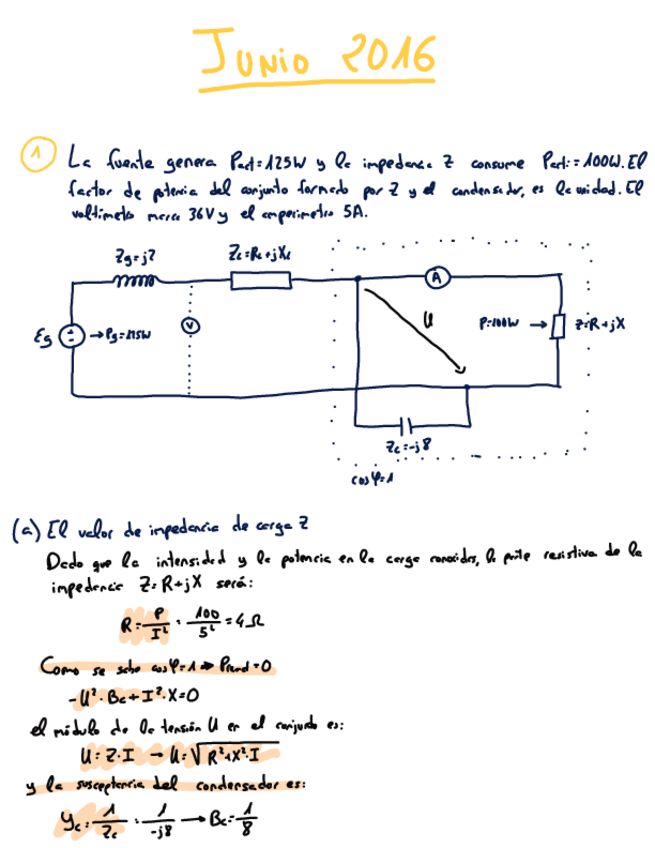 JUNIO 2016
1 La fuente genera Pact=125W y la impedancia Z consume Pact:=100W. El
factor de potencia del conjunto formado por Z y el condensador, es la unidad. El
voltímetro marca 36V y el amperímetro 5A.
Zg=j2 Zl=Rl+jXl
A
V
U
Eg →Pg=125W
P=100W → Z=R+jX
Zc=-j8
cosφ=1
(a) El valor de impedancia de carga Z
Dado que la intensidad y la potencia en la carga conocidas, la parte resistiva de la
impedancia Z=R+jX será:
R=P/I²=100/5²=4Ω
Como se sabe cosφ=1⇒Preact=0
-U²·Bc+I²·X=0
el módulo de la tensión U en el conjunto es:
U=Z·I → U=√R²+X²·I
y la susceptancia del condensador es:
Yc=1/Zc=1/-j8→Bc=1/8